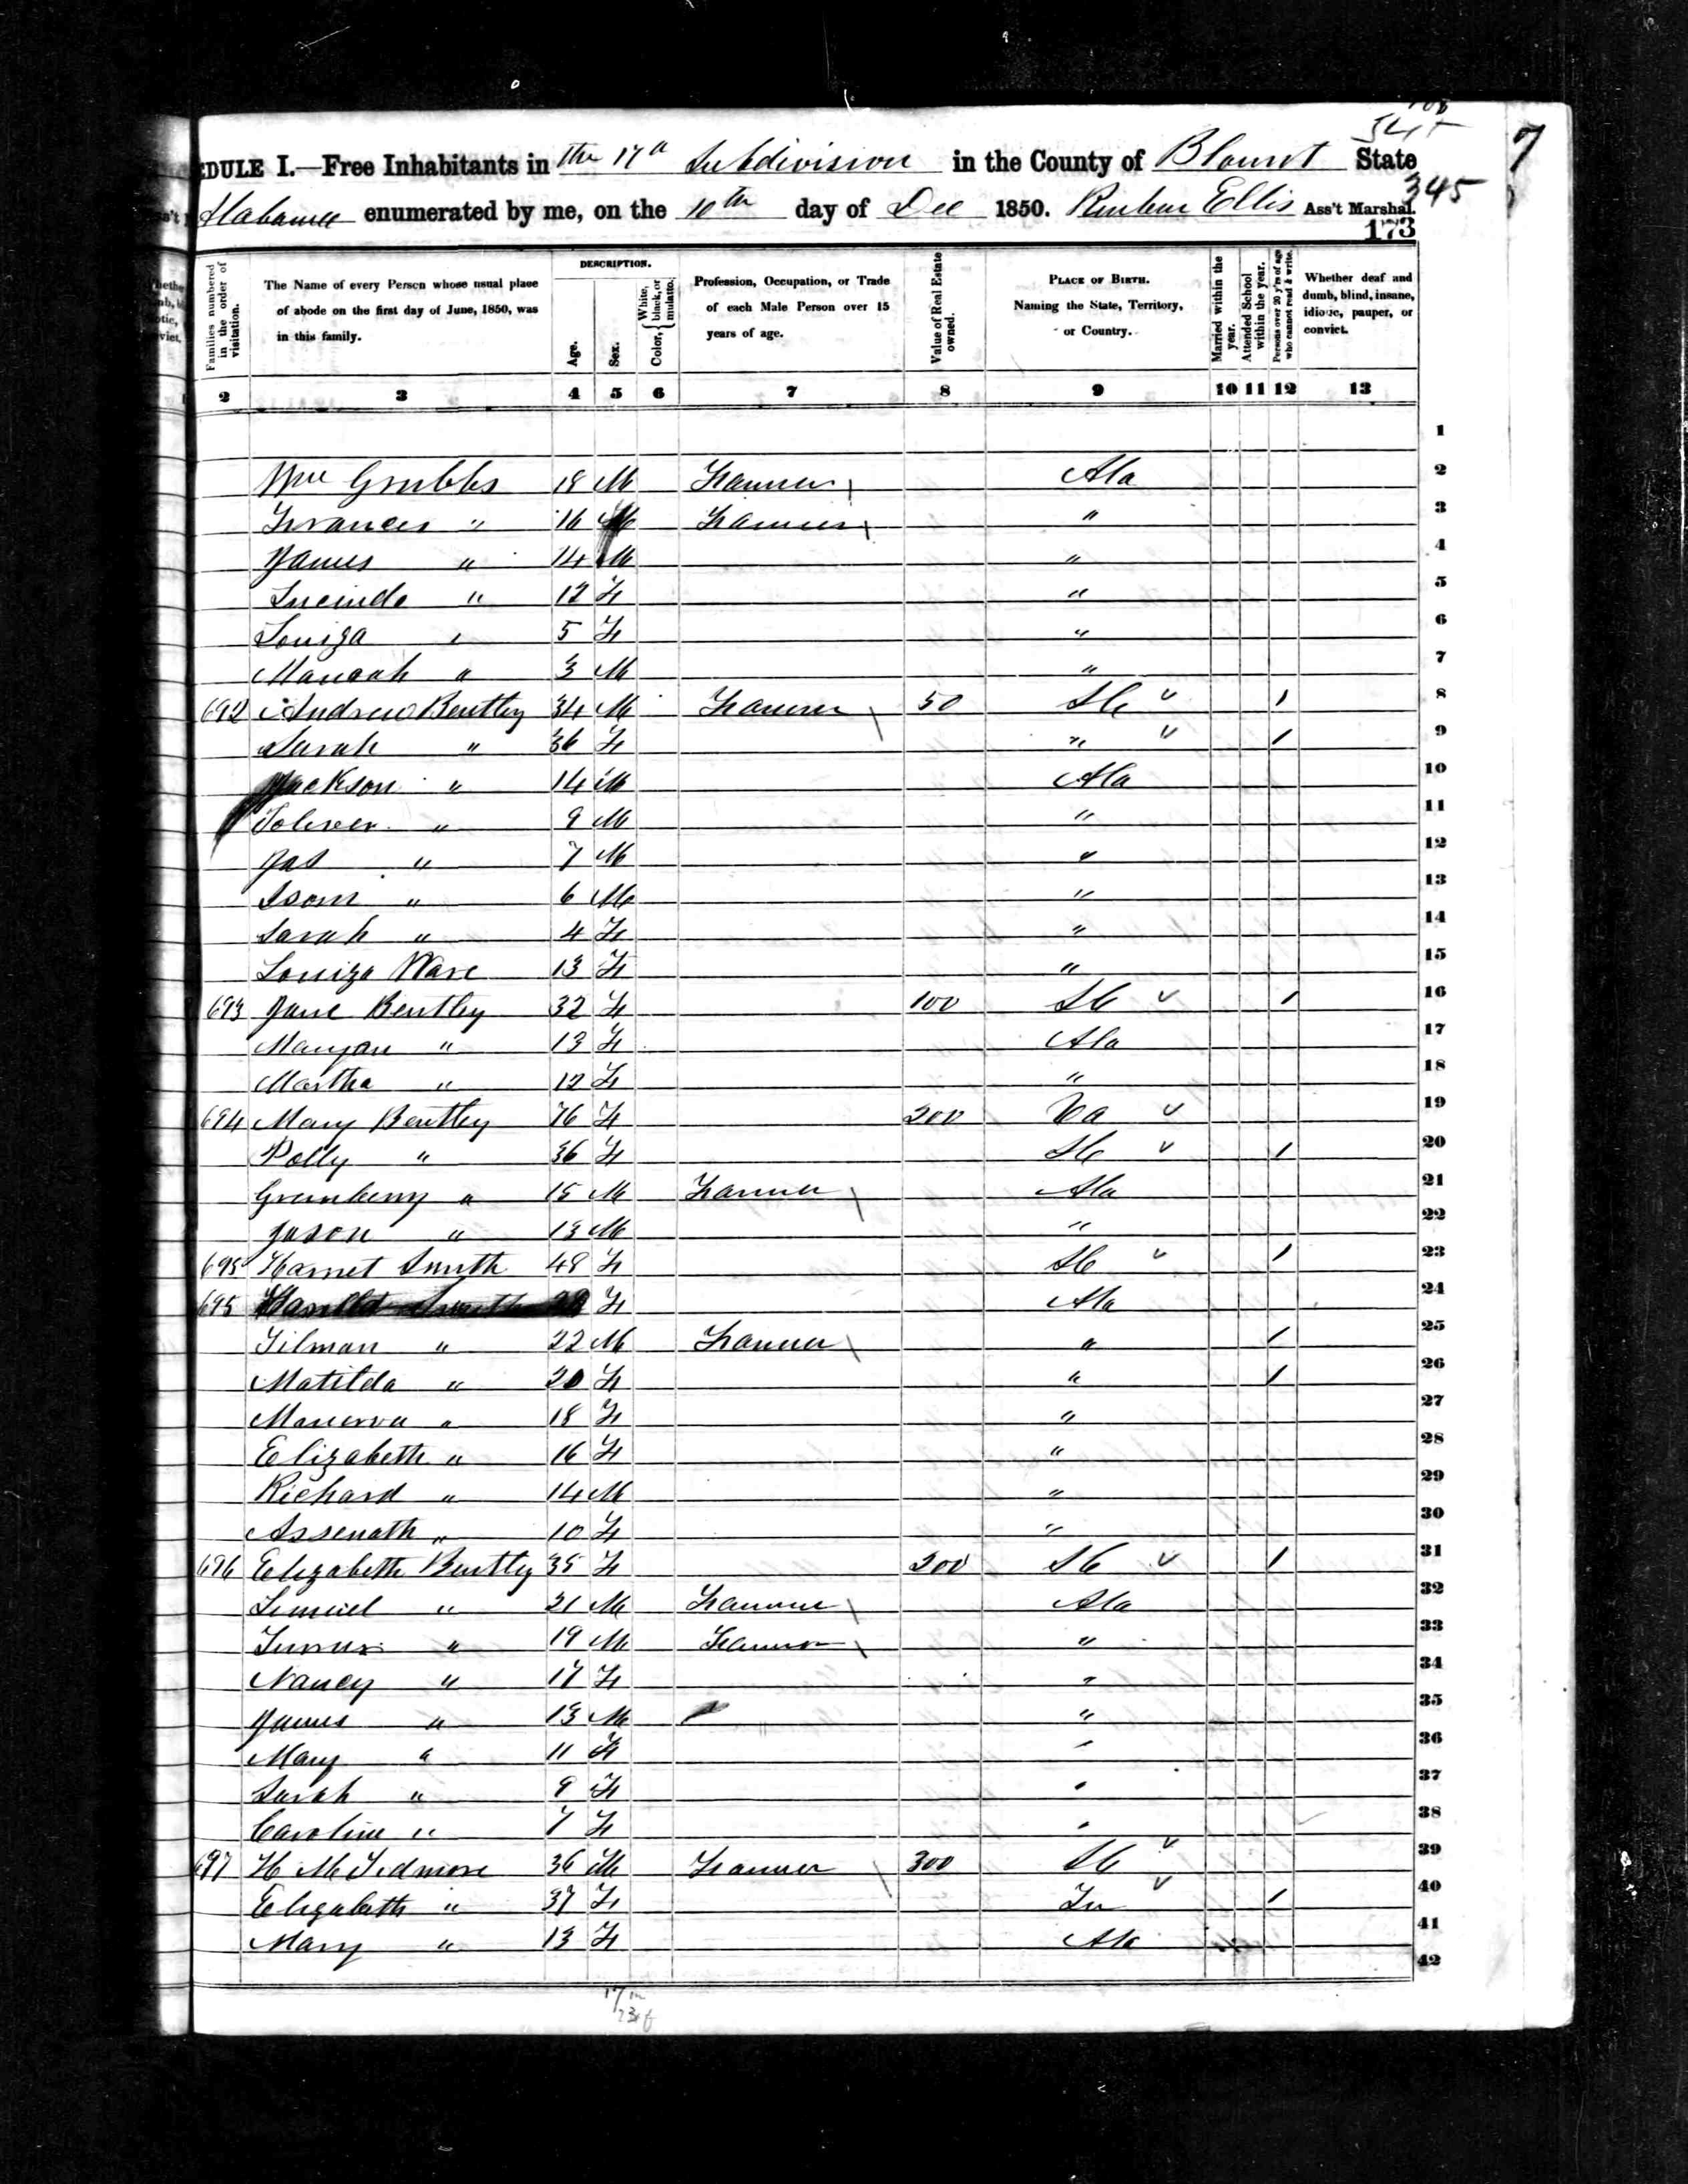 EDULE I.—Free Inhabitants in the 17th Subdivision in the County of Blount State
Alabama enumerated by me, on the 10th day of Dec 1850. Reuben Ellis Ass't Marshal.
7
345
173
Families numbered in the order of visitation.
The Name of every Person whose usual place of abode on the first day of June, 1850, was in this family.
DESCRIPTION.
Age.
Sex.
Color, { White, black, or mulatto.
Profession, Occupation, or Trade of each Male Person over 15 years of age.
Value of Real Estate owned.
PLACE OF BIRTH. Naming the State, Territory, or Country.
Married within the year.
Attended School within the year.
Persons over 20 y'rs of age who cannot read & write.
Whether deaf and dumb, blind, insane, idiotic, pauper, or convict.
2 3 4 5 6 7 8 9 10 11 12 13
1
Wm Grubbs 18 M Farmer Ala 2
Frances " 16 M Farmer " 3
James " 14 M " 4
Lucinda " 12 F " 5
Louiza " 5 F " 6
Manoah " 3 M " 7
692 Andrew Bentley 34 M Farmer 50 SC 1 8
Sarah " 36 F " 1 9
Jackson " 14 M Ala 10
Toliver " 9 M " 11
Jas " 7 M " 12
Isom " 6 M " 13
Sarah " 4 F " 14
Louiza Ware 13 F " 15
693 Jane Bentley 32 F 100 SC 1 16
Maryan " 13 F Ala 17
Martha " 12 F " 18
694 Mary Bentley 76 F 200 Va 19
Polly " 36 F SC 1 20
Greenberry " 15 M Farmer Ala 21
Jason " 13 M " 22
695 Harriet Smith 48 F SC 1 23
695 F Ala 24
Tilman " 22 M Farmer " 1 25
Matilda " 20 F " 1 26
Manerva " 18 F " 27
Elizabeth " 16 F " 28
Richard " 14 M " 29
Assenath " 10 F " 30
696 Elizabeth Bentley 35 F 200 SC 1 31
Lemuel " 21 M Farmer Ala 32
" 19 M Farmer " 33
Nancy " 17 F " 34
James " 13 M " 35
Mary " 11 F " 36
Sarah " 9 F " 37
Caroline " 7 F " 38
697 H M Tidmore 36 M Farmer 300 SC 39
Elizabeth " 37 F Tn 1 40
Mary " 13 F Ala 41
42
17 m
23 f